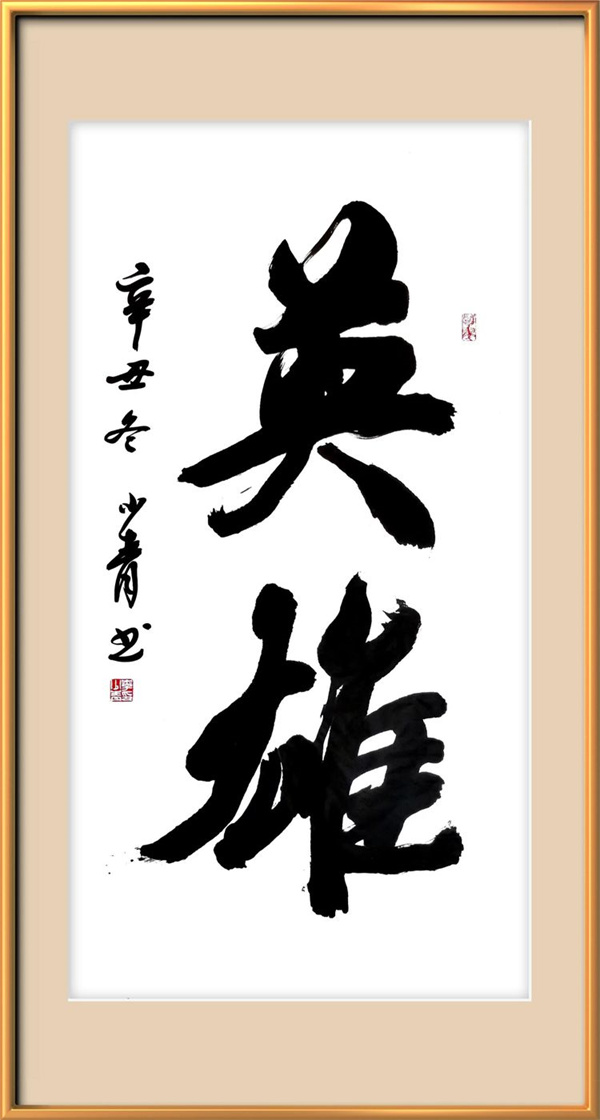 英雄
辛丑冬 少青书